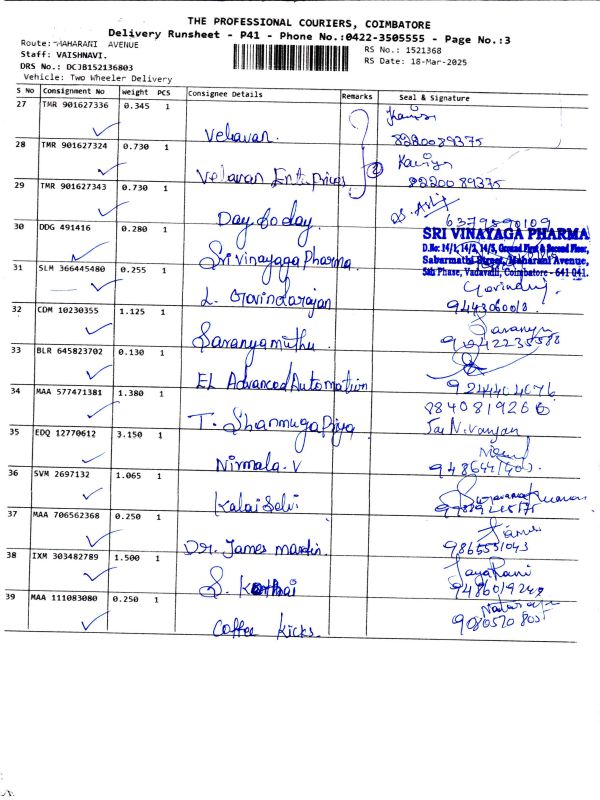 THE PROFESSIONAL COURIERS, COIMBATORE
Delivery Runsheet - P41 - Phone No.:0422-3505555 - Page No.:3
Route: MAHARANI AVENUE
RS No.: 1521368
Staff: VAISHNAVI.
RS Date: 18-Mar-2025
DRS No.: DCJB152136803
Vehicle: Two Wheeler Delivery
S No Consignment No Weight PCS Consignee Details Remarks Seal & Signature
27 TMR 901627336 0.345 1
Velavan. 8220089375
28 TMR 901627324 0.730 1 Kaviya
Velavan Enterprices 8220089375
29 TMR 901627343 0.730 1
Day to day 6379590109
30 DDG 491416 0.280 1
SRI VINAYAGA PHARMA
D.No: 14/1, 14/2, 14/3, Ground First & Second Floor,
Sabarmathi Street, Maharani Avenue,
5th Phase, Vadavalli, Coimbatore - 641 041.
Sri vinayaga Pharma.
31 SLM 366445480 0.255 1
L. Govindarajan
32 CDM 10230355 1.125 1 Saranya
Saranyamuthu
33 BLR 645823702 0.130 1
EL Advanced Automation 9244404076
34 MAA 577471381 1.380 1 8840819266
T. Shanmugapriya
35 EDQ 12770612 3.150 1
Nirmala.V
36 SVM 2697132 1.065 1
Kalai Selvi
37 MAA 706562368 0.250 1
Dr. James martin.
38 IXM 303482789 1.500 1 JayaRani
S.
39 MAA 111083080 0.250 1
Coffee Kicks. 9080520805